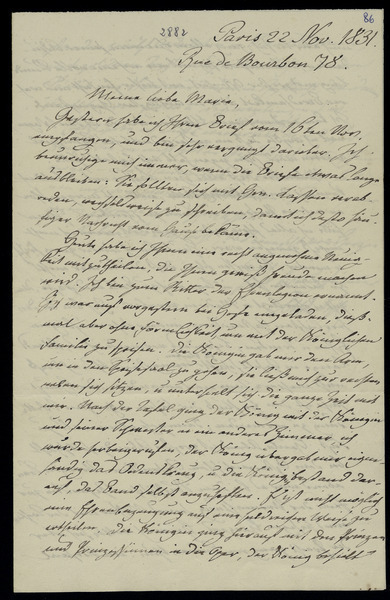 86
2882
Paris 22 Nov. 1831.
Rue de Bourbon 78.
Meine liebe Marie,
Gestern habe ich Ihren Brief vom 16ten Nov.
empfangen, und bin sehr vergnügt darüber. Ich
beunruhige mich immer, wenn die Briefe etwas lange
ausbleiben. Sie sollten sich mit Hrn. Lassen verab-
reden, wechselweise zu schreiben, damit ich desto häu-
figer Nachricht vom Hause bekäme.
Heute habe ich Ihnen eine recht angenehme Neuig-
keit mitzutheilen, die Ihnen gewiß Freude machen
wird. Ich bin zum Ritter der Ehrenlegion ernannt.
Ich war auf vorgestern bei Hofe eingeladen, dieß-
mal aber ohne Förmlichkeit, um mit der Königlichen
Familie zu speisen. Die Königin gab mir den Arm
um in den Speisesaal zu gehen, sie ließ mich zur rechten
neben sich sitzen, u unterhielt sich die ganze Zeit mit
mir. Nach der Tafel ging der König mit der Königin
und seiner Schwester in ein anderes Zimmer, ich
wurde hereingerufen, der König übergab mir eigen-
händig das Ordenskreuz, u die Königin bestand dar-
auf, das Band selbst anzuheften. Es ist nicht möglich
eine Ehrenbezeugung auf eine schmeichelhaftere Weise zu
ertheilen. Die Königin ging hierauf mit den Prinzen
und Prinzessinnen in die Oper, der König behielt